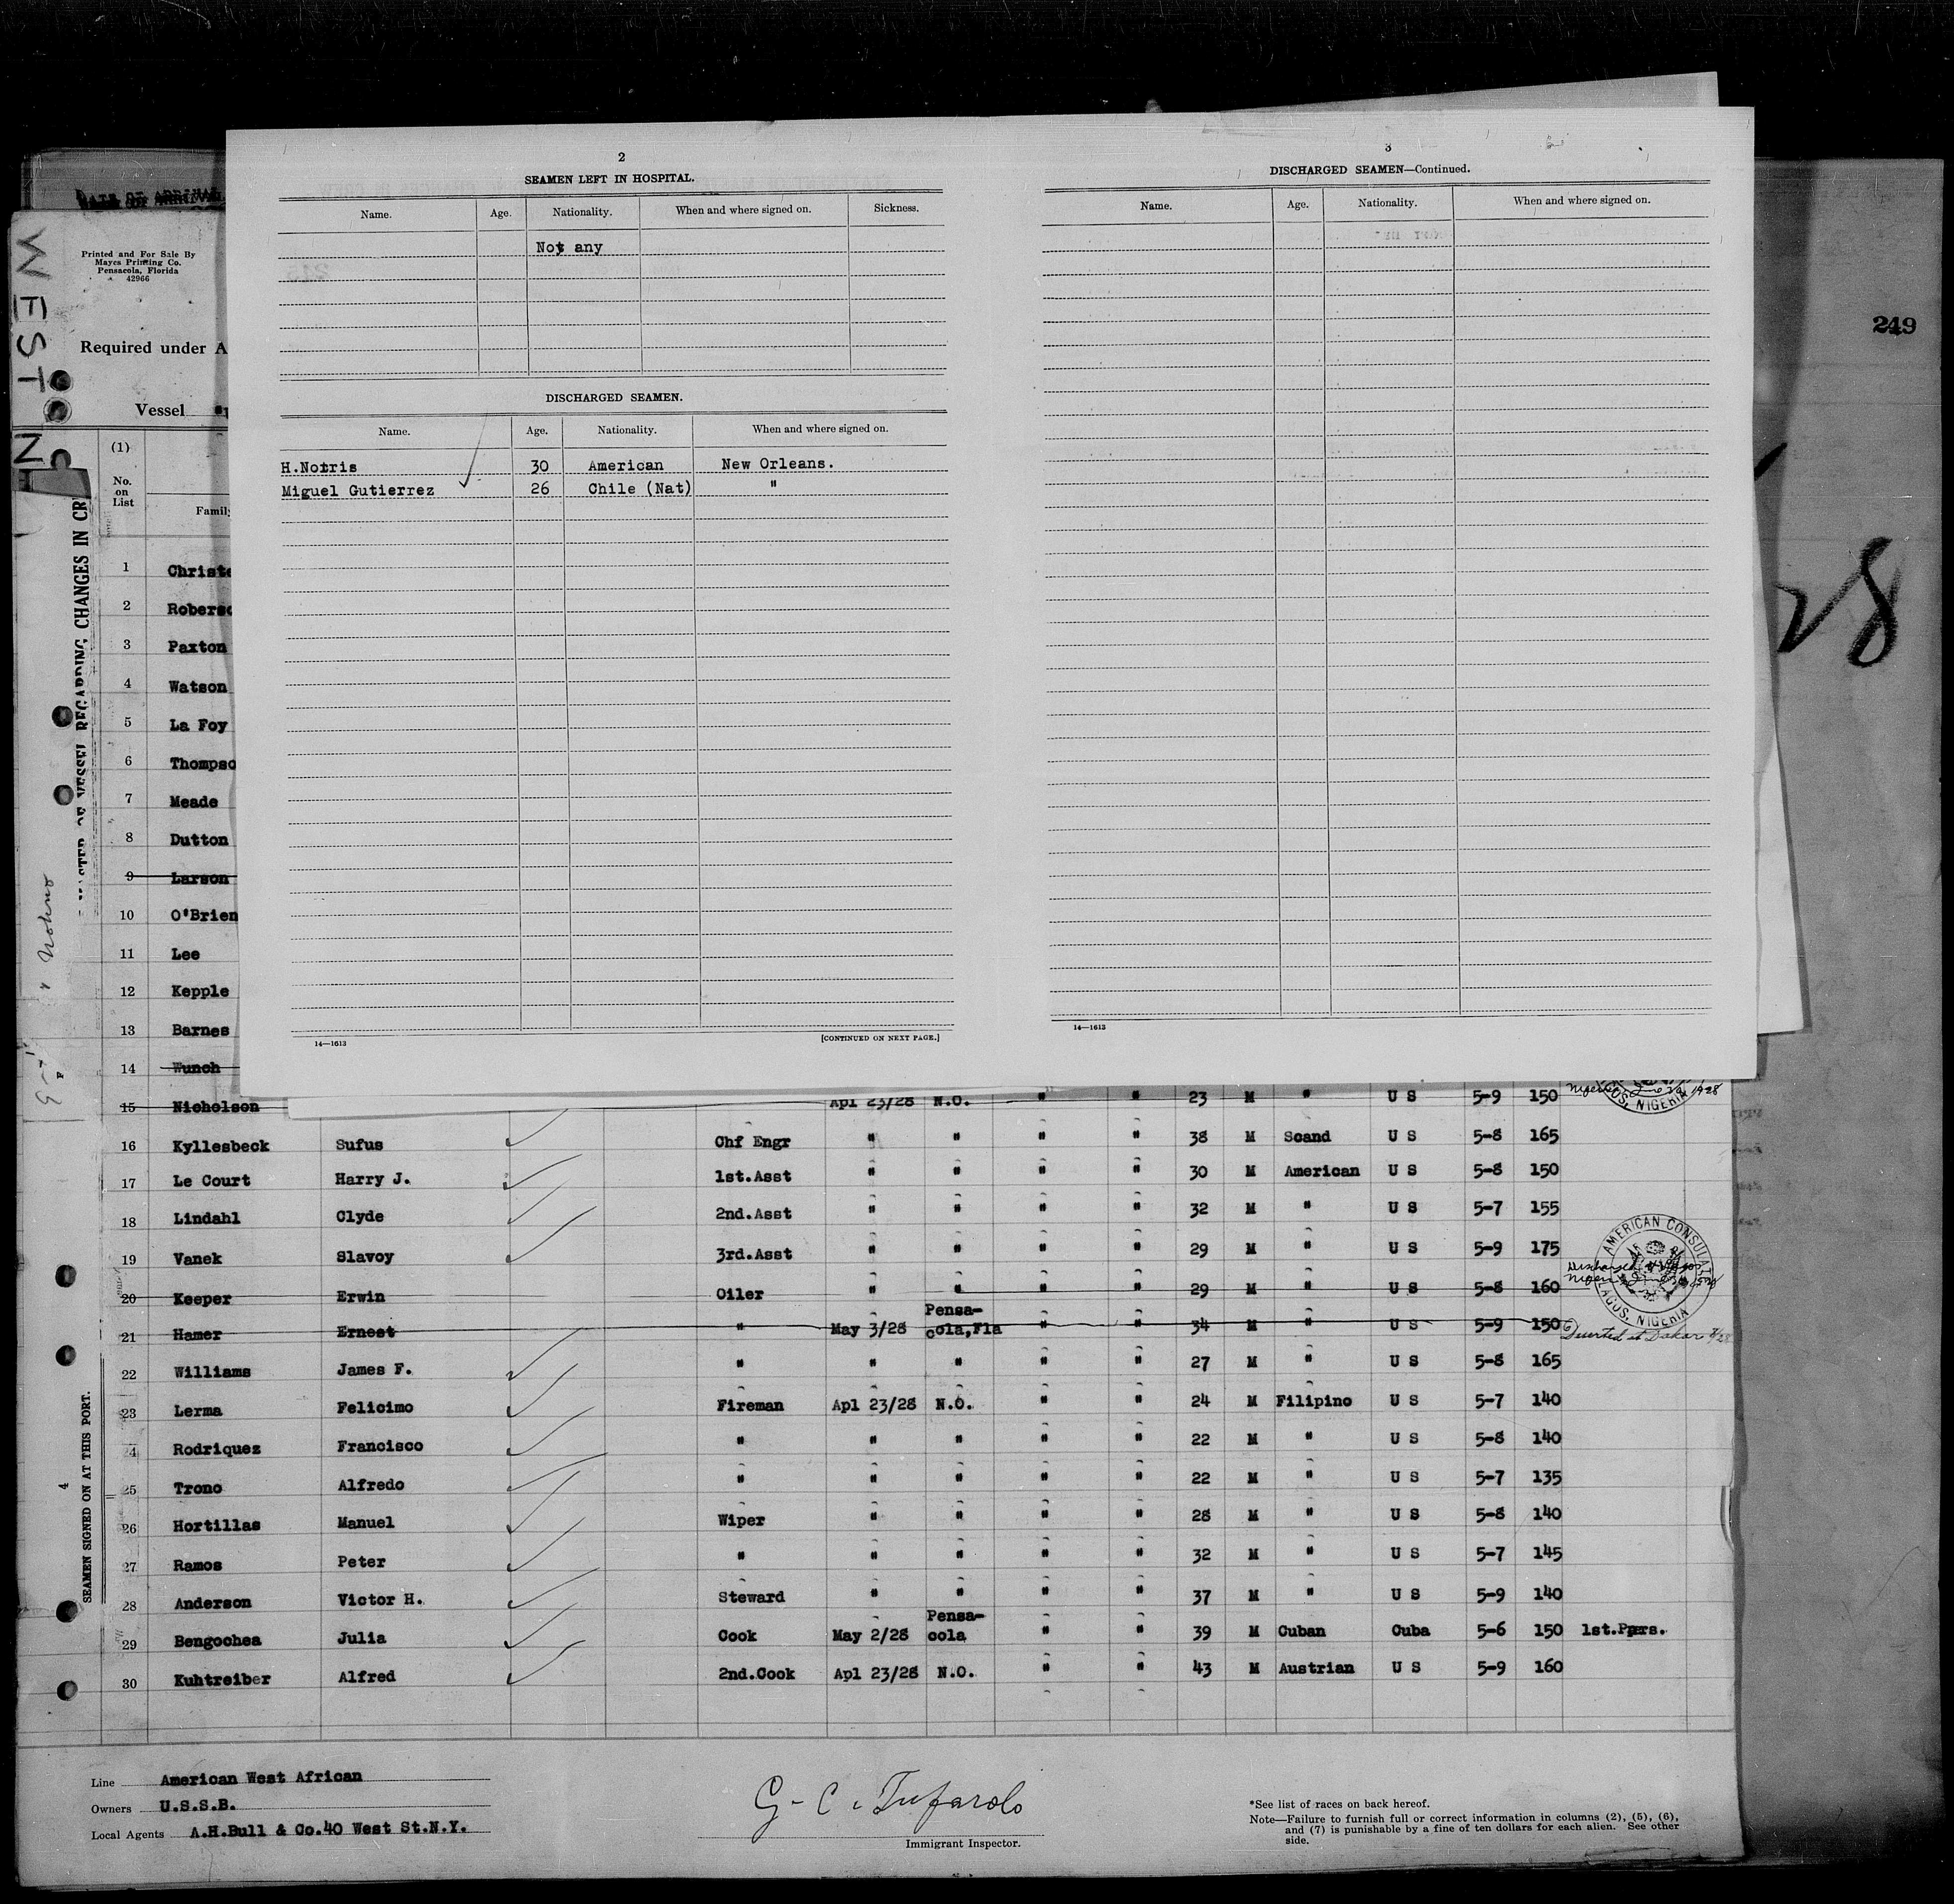 2
SEAMEN LEFT IN HOSPITAL.
Name. Age. Nationality. When and where signed on. Sickness.
Not any
DISCHARGED SEAMEN.
Name. Age. Nationality. When and where signed on.
H.Notris 30 American New Orleans.
Miguel Gutierrez 26 Chile (Nat) "
14—1613 [CONTINUED ON NEXT PAGE.]
3
DISCHARGED SEAMEN—Continued.
Name. Age. Nationality. When and where signed on.
14—1613
249
28
DATE OF ARRIVAL
WEST
N
Printed and For Sale By
Mayes Printing Co.
Pensacola, Florida
42966
Required under A
Vessel
(1)
No.
on
List
Family
REGARDING CHANGES IN CR
SEAMEN SIGNED ON AT THIS PORT.
4
1 Christe
2 Roberso
3 Paxton
4 Watson
5 La Foy
6 Thompso
7 Meade
8 Dutton
9 Larson
10 O'Brien
11 Lee
12 Kepple
13 Barnes
14 Wunch
15 Nicholson Apl 23/28 N.O. " " 23 M " U S 5-9 150
16 Kyllesbeck Sufus Chf Engr " " " " 38 M Scand U S 5-8 165
17 Le Court Harry J. 1st.Asst " " " " 30 M American U S 5-8 150
18 Lindahl Clyde 2nd.Asst " " " " 32 M " U S 5-7 155
19 Vanek Slavoy 3rd.Asst " " " " 29 M " U S 5-9 175
20 Keeper Erwin Oiler " " " " 29 M " U S 5-8 160
AMERICAN CONSULATE
LAGOS, NIGERIA
21 Hamer Ernest " May 3/28 Pensa-
cola,Fla " " 34 M " U S 5-9 150 Deserted at Dakar
22 Williams James F. " " " " " 27 M " U S 5-8 165
23 Lerma Felicimo Fireman Apl 23/28 N.O. " " 24 M Filipino U S 5-7 140
24 Rodriquez Francisco " " " " " 22 M " U S 5-8 140
25 Trono Alfredo " " " " " 22 M " U S 5-7 135
26 Hortillas Manuel Wiper " " " " 28 M " U S 5-8 140
27 Ramos Peter " " " " " 32 M " U S 5-7 145
28 Anderson Victor H. Steward " " " " 37 M " U S 5-9 140
29 Bengochea Julia Cook May 2/28 Pensa-
cola " " 39 M Cuban Cuba 5-6 150 1st.Pprs.
30 Kuhtreiber Alfred 2nd.Cook Apl 23/28 N.O. " " 43 M Austrian U S 5-9 160
Line American West African
Owners U.S.S.B.
Local Agents A.H.Bull & Co.40 West St.N.Y.
G. C. Tufarolo
Immigrant Inspector.
*See list of races on back hereof.
Note—Failure to furnish full or correct information in columns (2), (5), (6),
and (7) is punishable by a fine of ten dollars for each alien. See other
side.